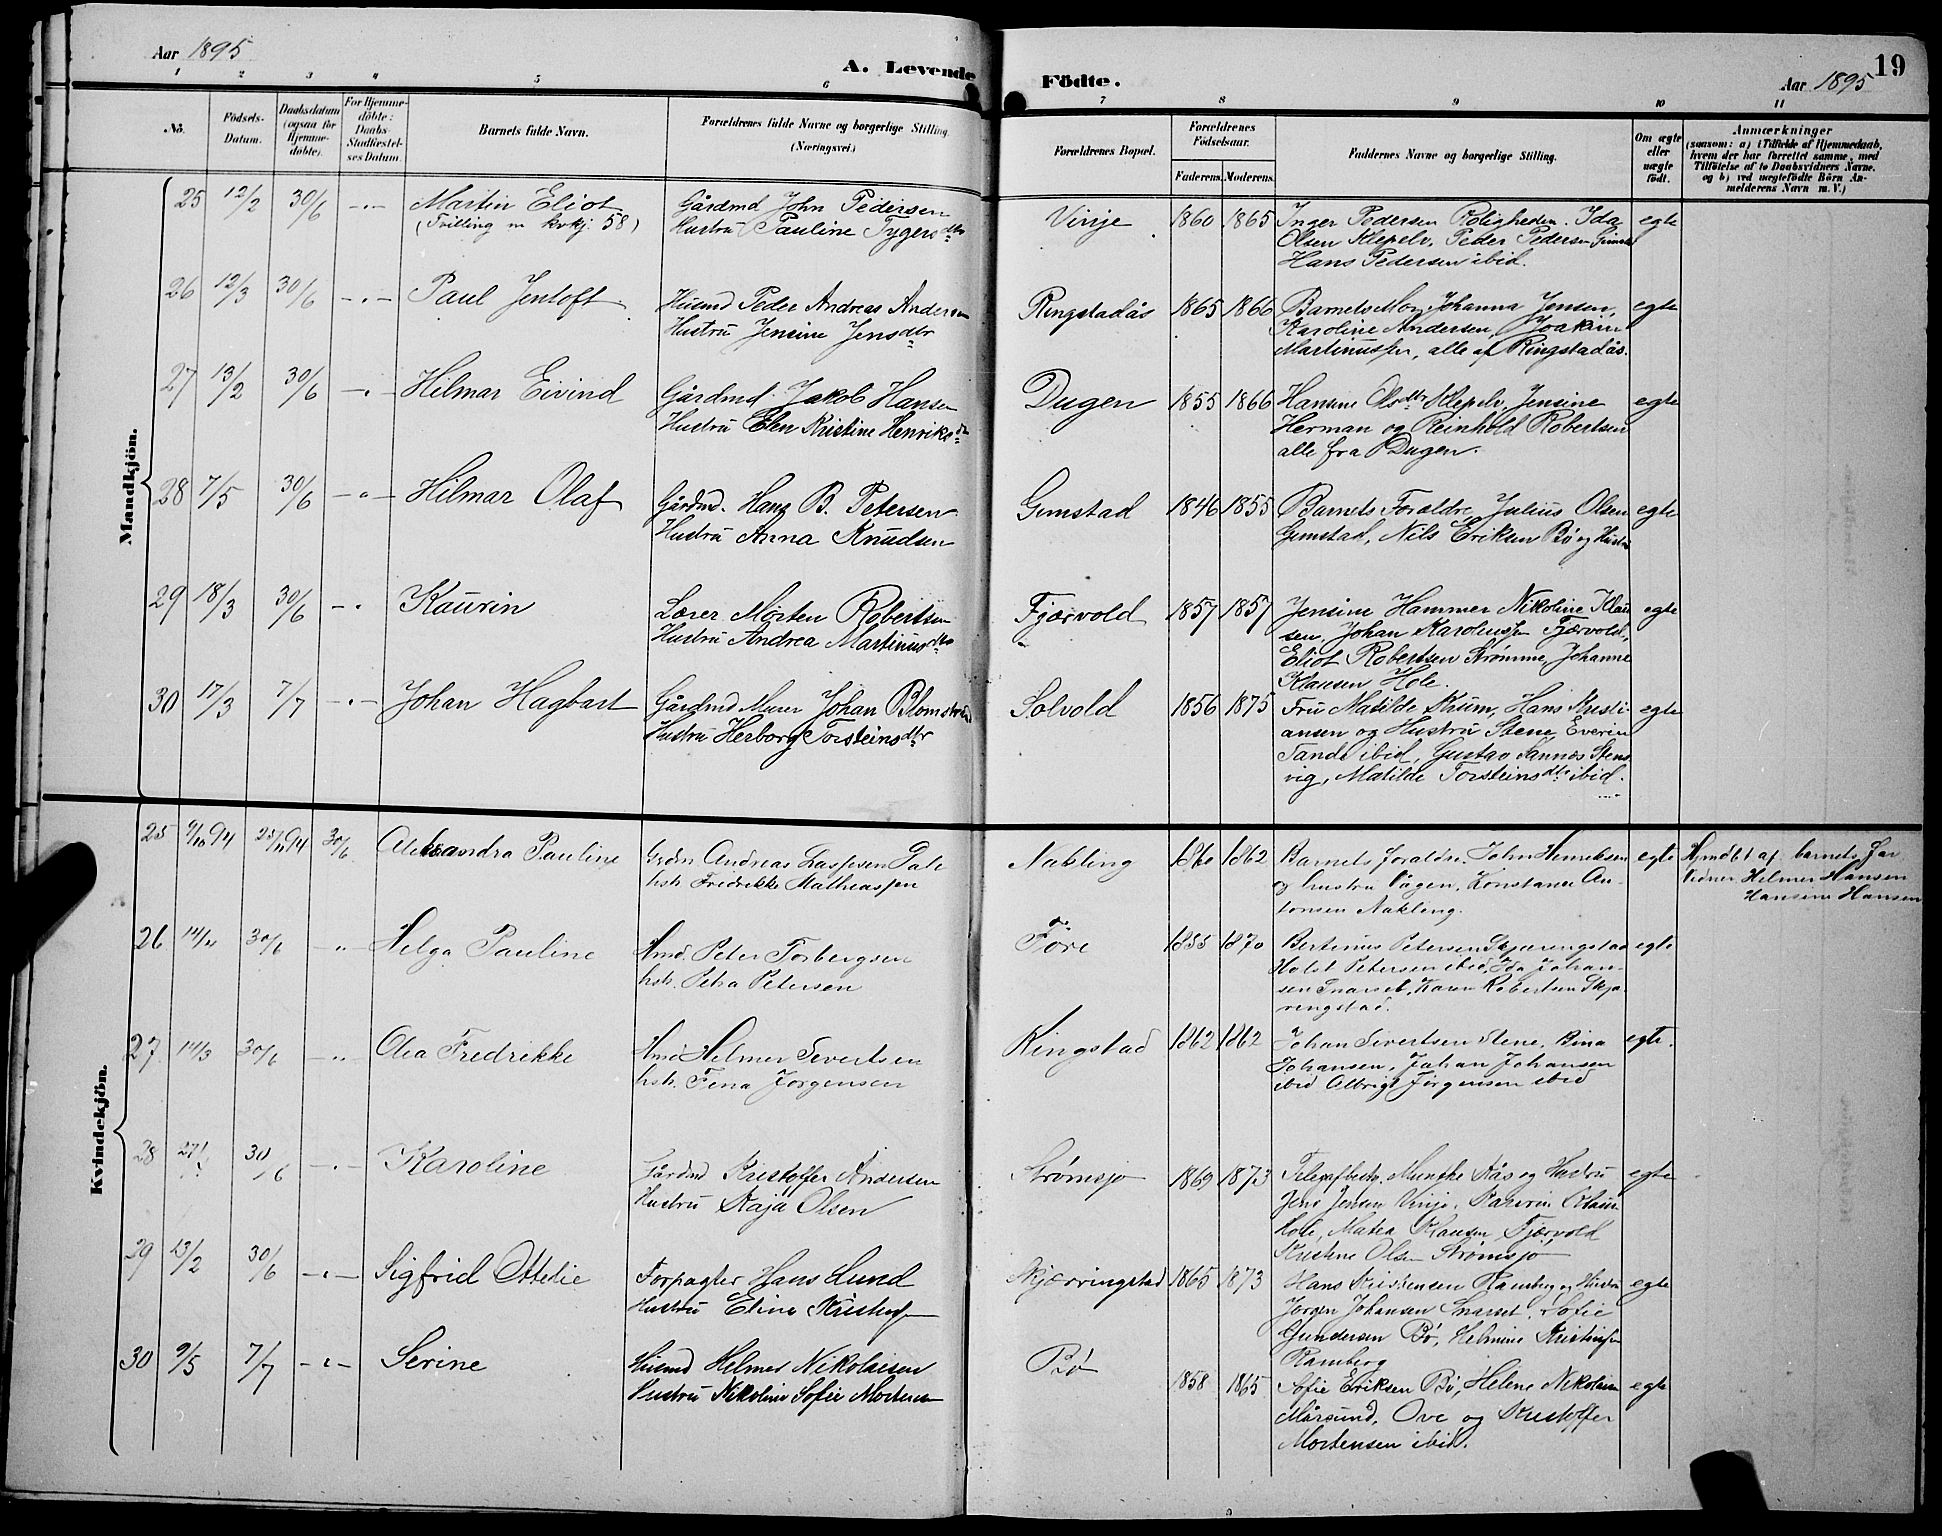 Aar 1895
A. Levende Födte.
Aar 1895
19
1 2 3 4 5 6 7 8 9 10 11
No.
Födsels-Datum.
Daabsdatum (ogsaa for Hjemme-döbte).
For Hjemme-döbte: Daabs-Stadfæstel-ses Datum.
Barnets fulde Navn.
Forældrenes fulde Navne og borgerlige Stilling. (Næringsvei.)
Forældrenes Bopæl.
Forældrenes Födselsaar.
Faderens. Moderens.
Faddernes Navne og borgerlige Stilling.
Om ægte eller uægte födt.
Anmærkninger
(saasom: a) i Tilfælde af Hjemmedaab, hvem der har forrettet samme, med Tilföielse af to Daabsvidners Navne, og b) ved uægtefödte Börn An-melderens Navn m. V.)
Mandkjön.
25 12/2 30/6 -"- Martin Eliot
(Tvilling m kvkj. 58)
Gårdmd John Pedersen
Hustru Pauline Tygersdtr
Vinje 1860 1865
Inger Pedersen Roligheden. Ida
Olsen Klepelv. Peder Pedersen
Hans Pedersen ibid.
egte
26 12/3 30/6 -"- Paul Jentoft
Husmd Peder Andreas Andersen
Hustru Jensine Jensdtr
Ringstadås 1865 1866
Barnets Mor, Johanna Jensen,
Karoline Andersen, Joakim
Martinussen, alle af Ringstadås.
egte
27 13/2 30/6 -"- Hilmar Eivind
Gårdmd. Jakob Hansen
Hustru Elen Kristine Henriksdtr
Dugen 1855 1866
Hansine Olsdtr Klepelv, Jensine
Herman og Reinhold Robertsen
alle fra Dugen.
egte
28 7/5 30/6 -"- Hilmar Olaf
Gårdmd. Hans B. Petersen
Hustru Anna Knudsen
Gimstad 1846 1855
Barnets Forældre, Julius Olsen
Gimstad, Nils Eriksen Bø og Hustru
egte
29 18/3 30/6 -"- Kaurin
Lærer Morten Robertsen
Hustru Andrea Martinusdtr
Fjærvold 1857 1857
Jensine Hammer Nikoline Klau
sen, Johan Karolussen Fjærvold,
Eliot Robertsen Strømme, Johanne
Klausen Hole.
egte
30 17/3 7/7 -"- Johan Hagbart
Gårdmd Murer Johan Blomstrand
Hustru Herborg Torsteinsdtr
Solvold 1856 1875
Fru Matilde Krum, Hans Kristi-
ansen og Hustru Stene, Everin
Tande ibid, Gustav Sannæs Stens
vig, Matilde Torsteinsdtr ibid.
egte
Kvindekjön.
25 9/10 94 25/12 94 30/6 Aleksandra Pauline
Grdm Andreas Lassesen Dale
hstr. Fredrikke Mathiassen
Nakling 1860 1862
Barnets forældre. John Henriksen
og hustru Vågen. Konstanse An-
tonsen Nakling.
egte
Hjmdbt af barnets far
Vidner Helmer Hansen
Hansine Hansen
26 14/4 30/6 " Helga Pauline
Hmd. Peter Torbergsen
hstr. Petra Petersen
Føre 1855 1870
Bertinus Petersen Skjæringstad
Holst Petersen ibid, Ida Johan-
sen Snarset, Karen Robertsen Skjæ-
ringstad.
egte
27 14/3 30/6 -"- Olea Fredrikke
Hmd Helmer Sivertsen
hstr. Fina Jørgensen
Ringstad 1862 1862
Johan Sivertsen Stene, Bina
Johansen, Johan Johansen
ibid Albrigt Jørgensen ibid
egte.
28 30/6 -"- Karoline
Gårdmd Kristoffer Andersen
Hustru Kaja Olsen
Strømsjo 1869 1873
Telegrafbestr. Munthe Kås og Hustru
Jens Jensen Vinje, Claus
Hole, Matea Klausen Fjærvold
Kristine Olsen Strømsjo
egte
29 13/2 30/6 -"- Sigfrid Ottelie
Forpagter Hans Lund
Hustru Eline
Skjærringstad 1865 1873
Hans Kristensen Ramberg og Hustru
Jørgen Johansen Snarset, Sofie
Gundersen Bø, Helmine Kristensen
Ramberg
egte
30 9/5 7/7 -"- Serine
Husmd Helmer Nikolaisen
Hustru Nikoline Sofie Mortensen
Bø 1858 1865
Sofie Eriksen Bø, Helene Nikolaisen
Mårsund, Ove og Kristoffer
Mortensen ibid.
egte